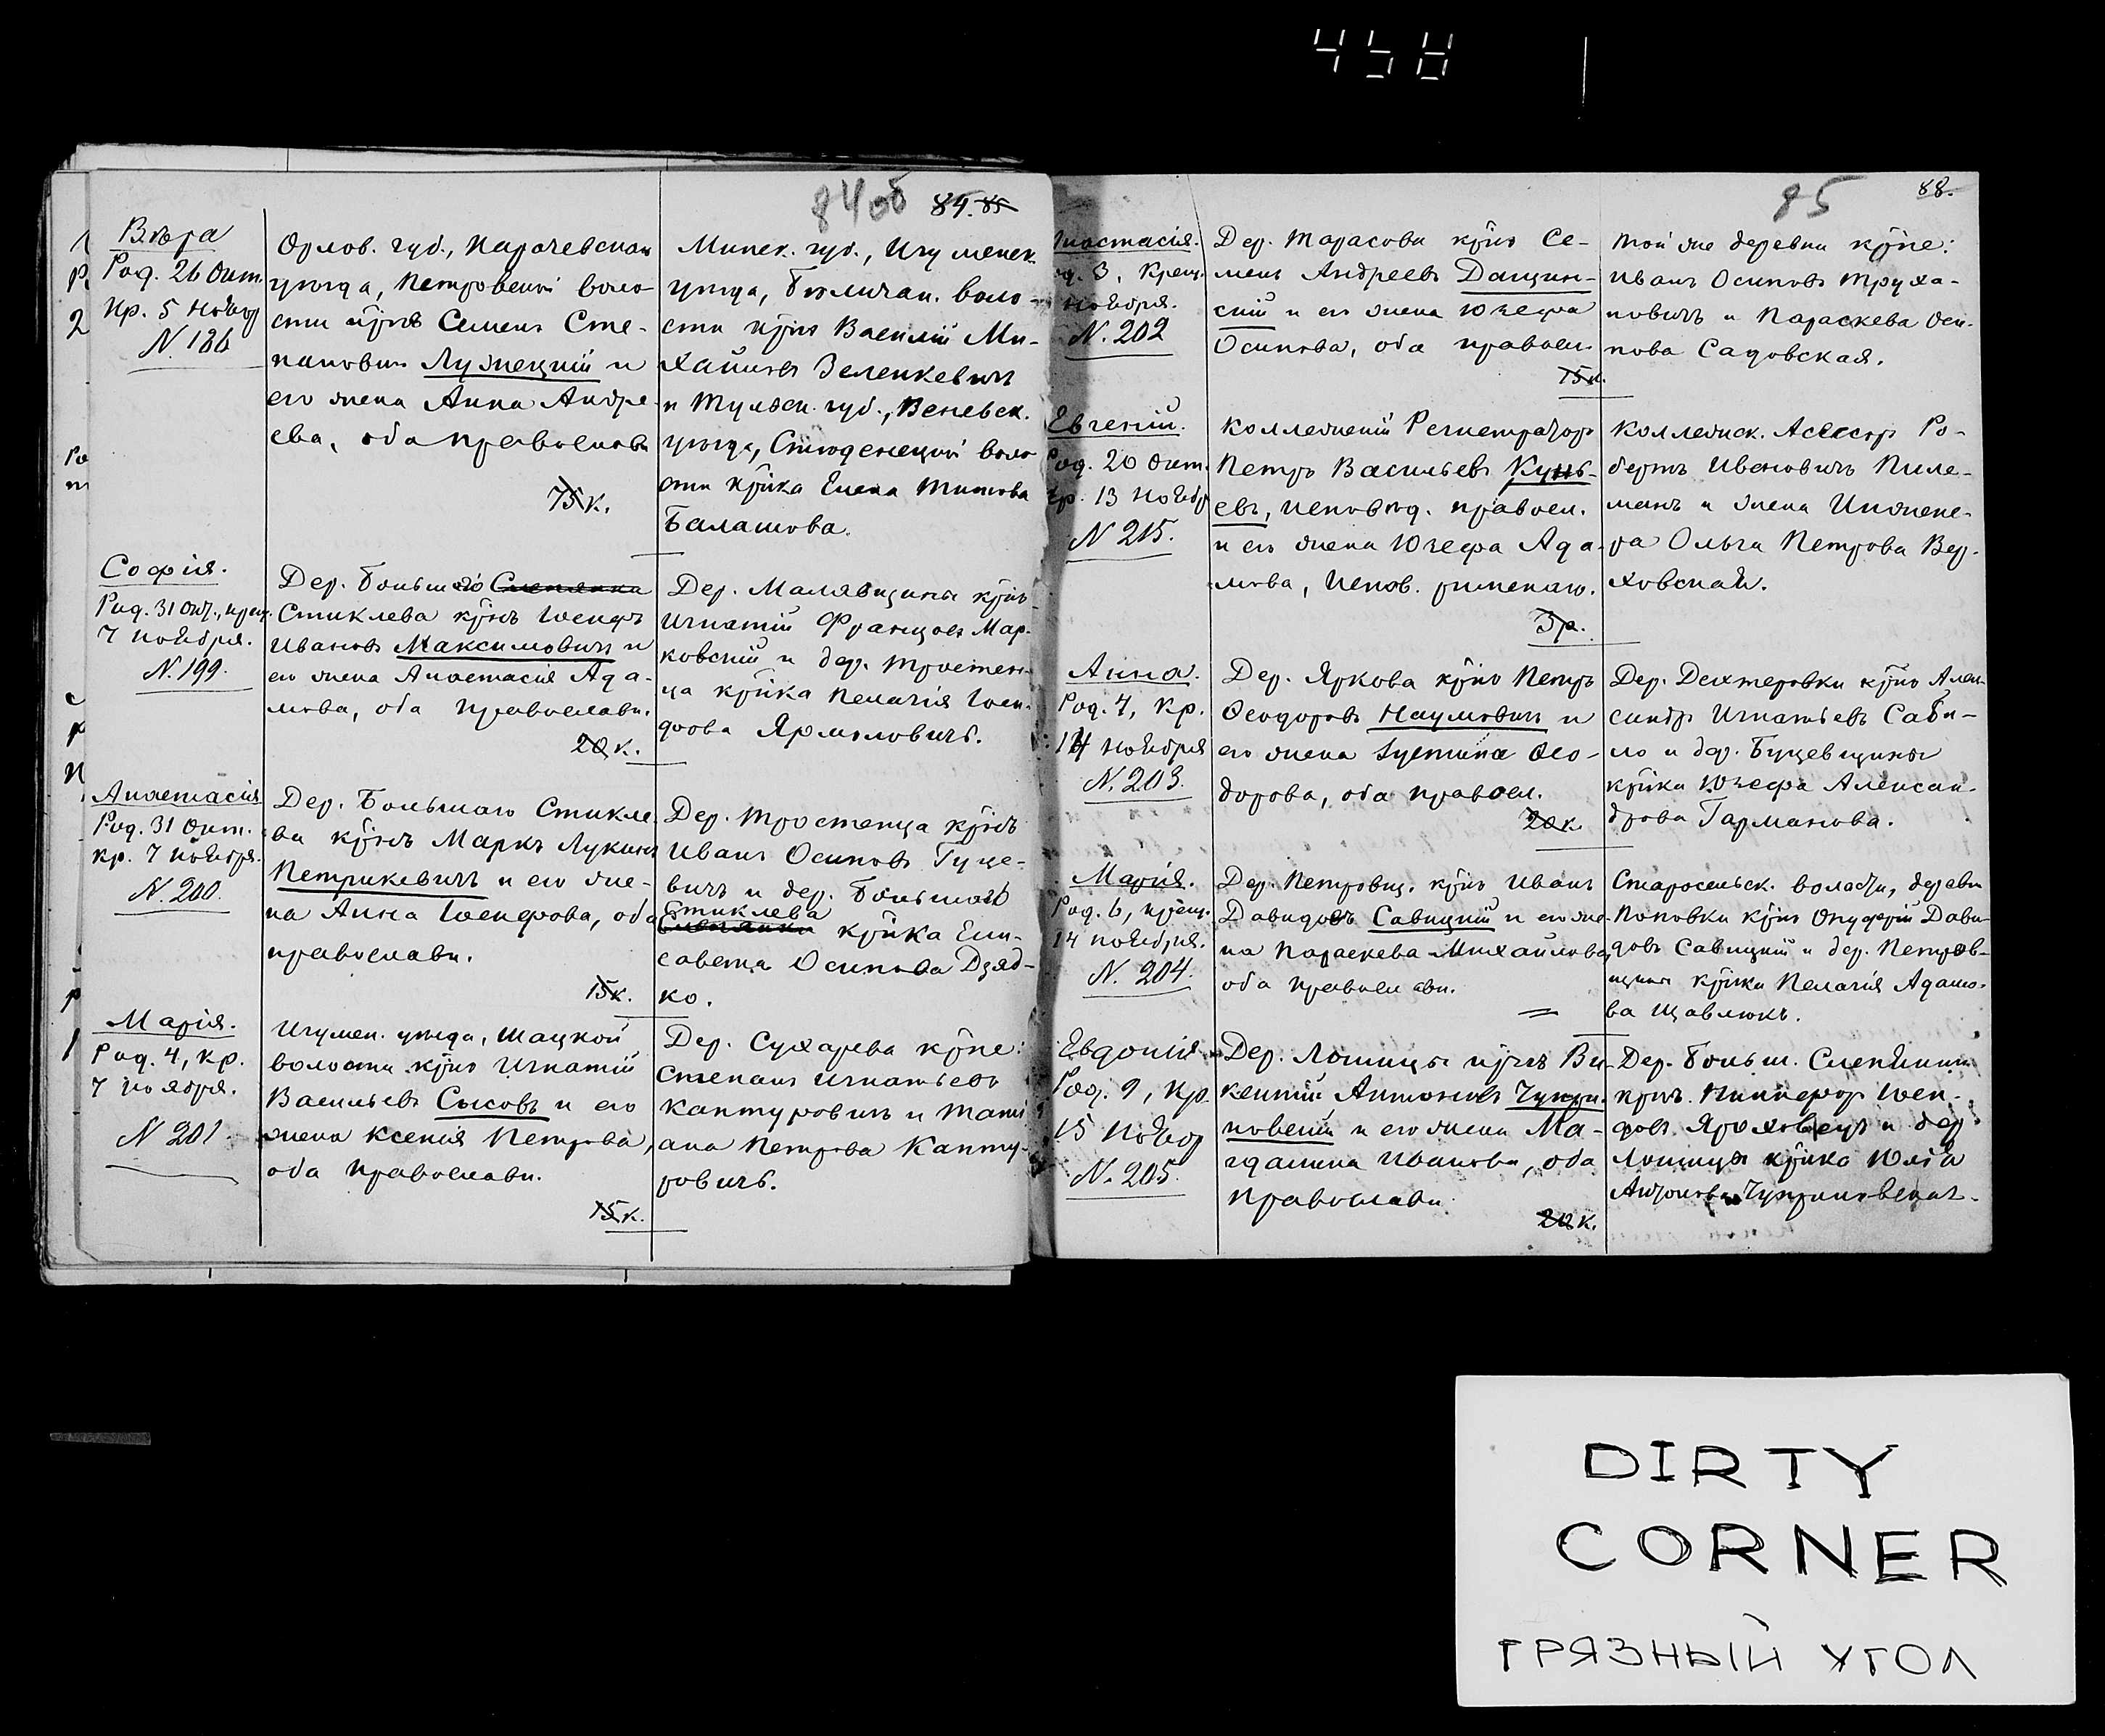 458
84об 84. 85
Вѣра
Род. 26 Окт.
Кр. 5 Ноябр
N. 186
Орлов. губ., Карачевскаго
уѣзда, Петровской воло-
сти кр̃нъ Семенъ Сте-
пановичъ Лузнецкій и
его жена Анна Андре-
ева, оба православн
75к.
Минск. губ., Игуменск.
уѣзда, волo-
сти кр̃нъ Василій Ми-
хайловъ Зеленкевичъ
и Тульск. губ., Веневск.
уѣзда, Студенецкой воло-
сти кр̃нка Елена Титова
Балашова.
Софія.
Род. 31 Окт., крещ.
7 ноября.
N. 199.
Дер. Большого Слепянка
Стиклева кр̃нъ Іосифъ
Ивановъ Максимовичъ и
его жена Анастасія Ада-
мова, оба православн.
20к.
Дер. Малявщины кр̃нъ
Игнатій Францовъ Мар-
ковскій и дер. Тростен-
ца кр̃нка Пелагія Іоси-
фова Ярмоловичъ.
Анастасія
Род. 31 Окт.
кр. 7 ноября.
N. 200.
Дер. Большаго Стикле
ва кр̃нъ Маркъ Лукинъ
Петрикевичъ и его же-
на Анна Іосифова, оба
православн.
15к.
Дер. Тростенца кр̃нъ
Иванъ Осиповъ Гуце-
вичъ и дер. Большого
Стиклева
Слепянки кр̃нка Ели-
савета Осипова Дзяд-
ко.
Марія.
Род. 4, кр.
7 ноября.
N 201.
Игумен. уѣзда, Шацкой
волости кр̃нъ Игнатій
Васильевъ Сысовъ и его
жена Ксенія Петрова,
оба православн.
15к.
Дер. Сухарева кр̃не:
Степанъ Игнатьевъ
Каптуровичъ и Тати
ана Петрова Капту-
ровичъ.
85 88.
настасія.
д. 3, Крещ.
ноября.
N. 202
Дер. Тарасова кр̃нъ Се-
менъ Андреевъ Дащин-
скій и его жена Юзефа
Осипова, оба правосл.
15к.
Той же деревни кр̃не:
Иванъ Осиповъ Труха-
новичъ и Параскева Оси-
пова Садовская.
Евгеній.
Род. 20 Окт.
Кр. 13 ноябр
N 215.
Коллежскій Регистраторъ
Петръ Васильевъ Кунь-
евъ, исповѣд. правосл.
и его жена Юзефа Ада-
мова, испов. римскаго.
3р.
Коллежск. Асессоръ Ро-
бертъ Ивановичъ Пиле-
манъ и жена Инжене-
ра Ольга Петрова Вер-
ховская.
Анна.
Род. 7, Кр.
14 ноября
N. 203.
Дер. Яркова кр̃нъ Петръ
Ѳеодоровъ Наумовичъ и
его жена Іустина Ѳео-
дорова, оба правосл.
20к.
Дер. Дехтеровки кр̃нъ Алек-
сандръ Игнатьевъ Саби-
ло и дер. Буцевщины
кр̃нка Юзефа Алексан-
дрова Гарманова.
Марія.
Род. 6, крещ.
14 ноября.
N. 204.
Дер. Петровщ. кр̃нъ Иванъ
Давидовъ Савицкій и его же-
на Параскева Михайлова,
оба православн.
Старосельск. волости, деревн
Поповки кр̃нъ Онуфрій Дави-
довъ Савицкій и дер. Петров-
щины кр̃нка Пелагія Адамо-
ва Щавлюкъ.
Евдокія
Род. 9, Кр.
15 Ноябр
N. 205.
Дер. Лошицы кр̃нъ Ви-
кентій Антоновъ
и его жена Ма-
гдалина Иванова, оба
православн
20к.
Дер. Больш. Слепянки
кр̃нъ Никифоръ Іоси-
фовъ и дер
Лошицы кр̃нка Юлія
Антонова
DIRTY
CORNER
ГРЯЗНЫЙ УГОЛ